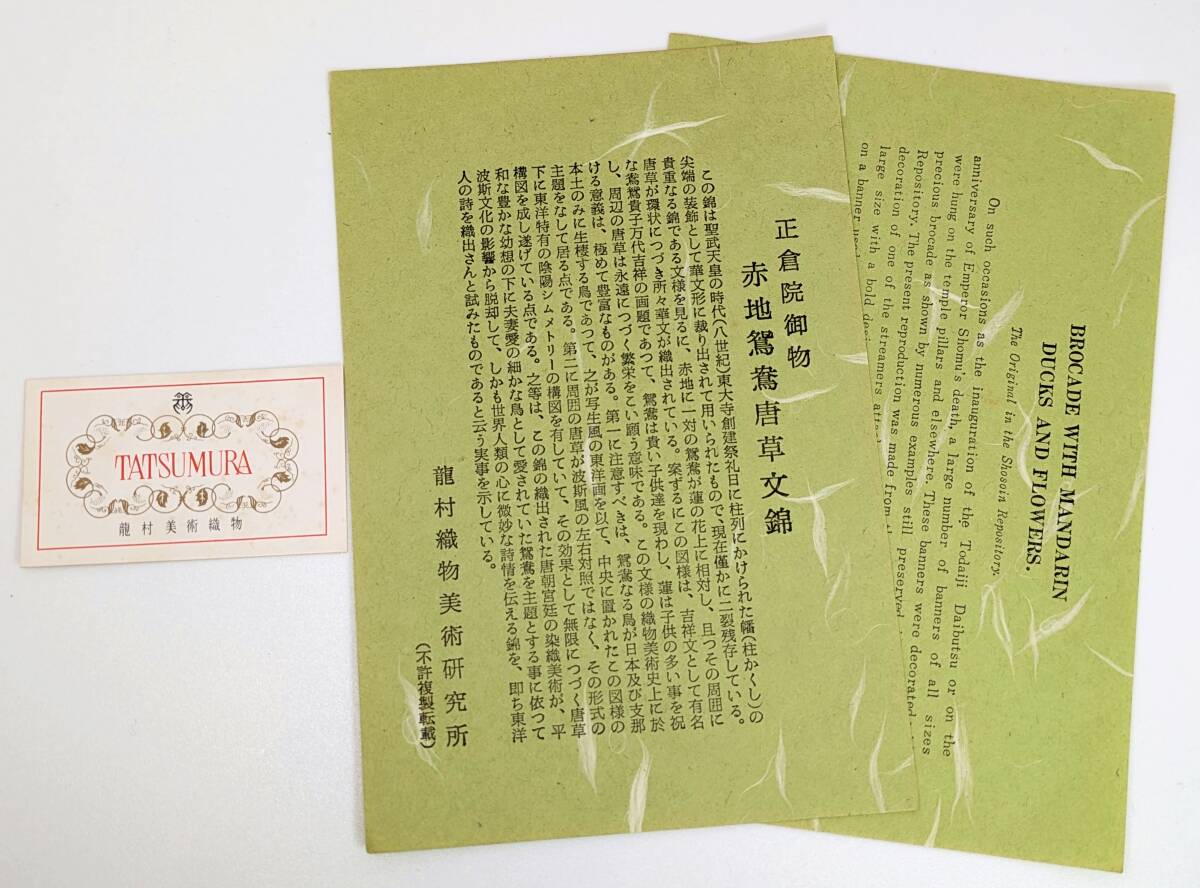 TATSUMURA
龍村美術織物
正倉院御物
赤地鴛鴦唐草文錦
この錦は聖武天皇の時代(八世紀)東大寺創建祭礼日に柱列にかけられた幡(柱かくし)の
尖端の装飾として華文形に裁り出されて用いられたもので、現在僅かに二裂残存している。
貴重なる錦である文様を見るに、赤地に一対の鴛鴦が蓮の花上に相対し、且つその周囲に
唐草が環状につづき所々華文が織出されている。案ずるにこの図様は、吉祥文として有名
な鴛鴦貴子万代吉祥の画題であつて、鴛鴦は貴い子供達を現わし、蓮は子供の多い事を祝
し、周辺の唐草は永遠につづく繁栄をこい願う意味である。この文様の織物美術史上に於
ける意義は、極めて豊富なものがある。第一に注意すべきは、鴛鴦なる鳥が日本及び支那
本土のみに生棲する鳥であつて、之が写生風の東洋画を以て、中央に置かれたこの図様の
主題をなして居る点である。第二に周囲の唐草が波斯風の左右対照ではなく、その形式の
下に東洋特有の陰陽シムメトリーの構図を有していて、その効果として無限につづく唐草
構図を成し遂げている点である。之等は、この錦の織出された唐朝宮廷の染織美術が、平
和な豊かな幼想の下に夫妻愛の細かな鳥として愛されていた鴛鴦を主題とする事に依つて
波斯文化の影響から脱却して、しかも世界人類の心に微妙な詩情を伝える錦を、即ち東洋
人の詩を織出さんと試みたものであると云う実事を示している。
龍村織物美術研究所
(不許複製転載)
BROCADE WITH MANDARIN
DUCKS AND FLOWERS.
The Original in the Shosoin Repository.
On such occasions as the inauguration of the Todaiji Daibutsu or on the
anniversary of Emperor Shomu's death, a large number of banners of all sizes
were hung on the temple pillars and elsewhere. These banners were decorated
precious brocade as shown by numerous examples still preserved
Repository. The present reproduction was made from
decoration of one of the streamers
large size with a bold
on a banner used